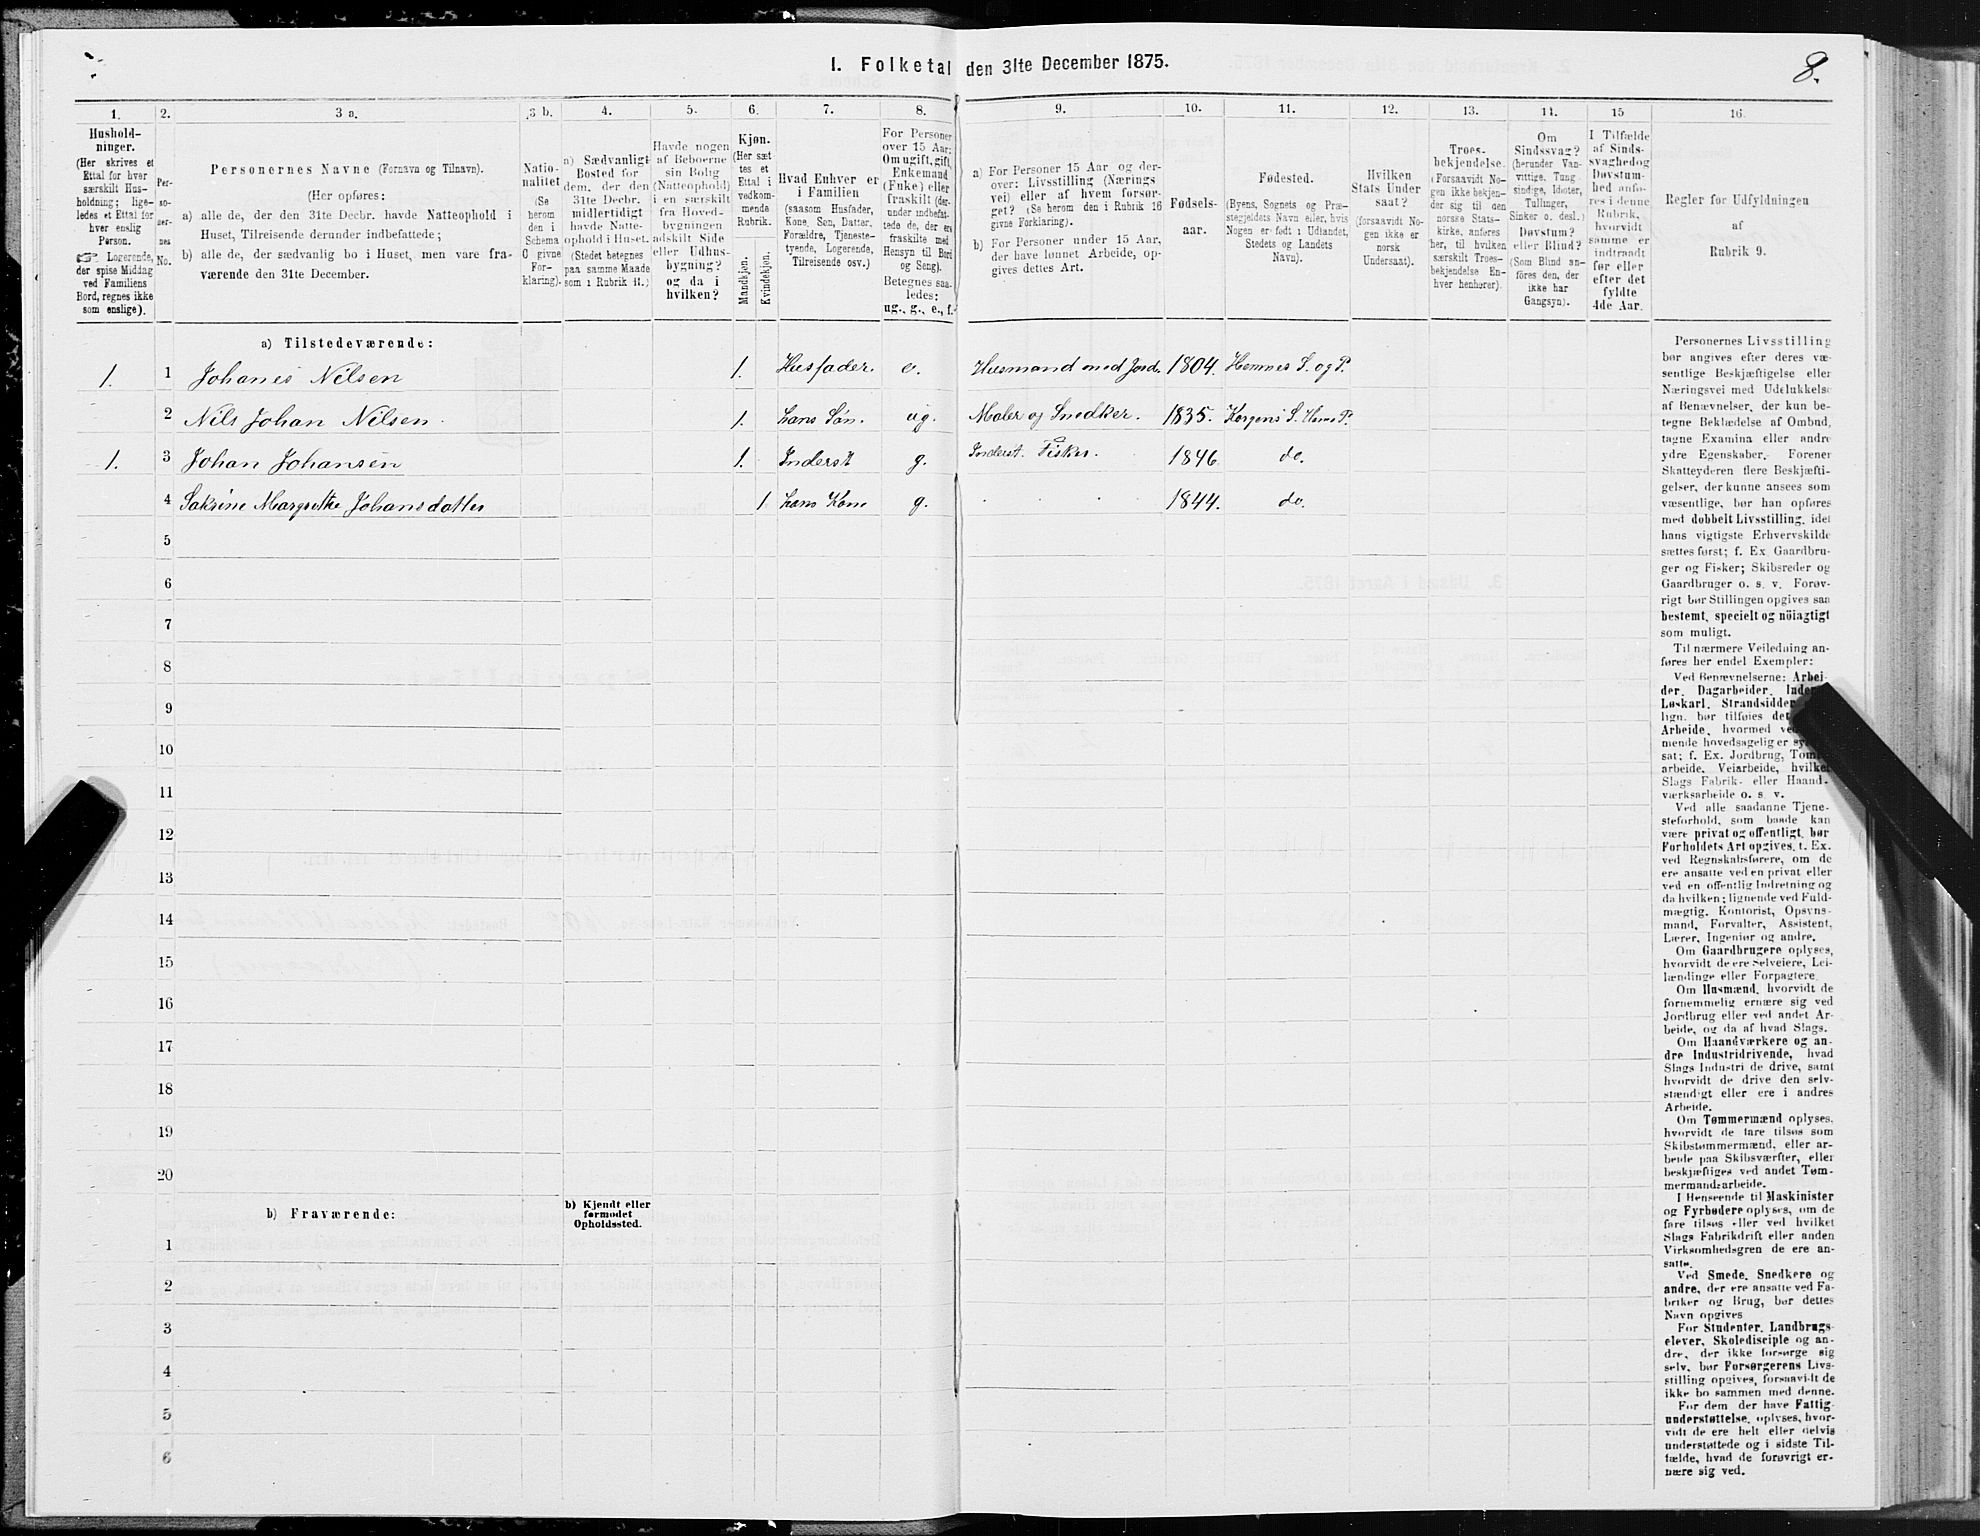 I. Folketal den 31te December 1875.
8.
1.
Hushold-
ninger.
(Her skrives et
Ettal for hver
særskilt Hus-
holdning; lige-
ledes et Ettal for
hver enslig
Person.
☞ Logerende,
der spise Middag
ved Familiens
Bord, regnes ikke
som enslige).
2.
Per-
so-
ner-
nes
No.
3 a.
Personernes Navne (Fornavn og Tilnavn).
(Her opføres:
a) alle de, der den 31te Decbr. havde Natteophold i
Huset, Tilreisende derunder indbefattede;
b) alle de, der sædvanlig bo i Huset, men vare fra-
værende den 31te December.
3 b.
Natio-
nalitet
(Se
herom
den i
Schema
O givne
For-
klaring).
4.
a) Sædvanligt
Bosted for
dem, der den
31te Decbr.
midlertidigt
havde Natte-
ophold i Huset.
(Stedet betegnes
paa samme Maade
som i Rubrik 11.)
5.
Havde nogen
af Beboerne
sin Bolig
(Natteophold)
i en særskilt
fra Hoved-
bygningen
adskilt Side
eller Udhus-
bygning?
og da i
hvilken?
6.
Kjøn.
(Her sæt
tes et
Ettal i
vedkom-
mende
Rubrik.
Mandkjøn.
Kvindekjøn.
7.
Hvad Enhver er
i Familien
(saasom Husfader,
Kone, Søn, Datter,
Forældre, Tjeneste-
tyende, Logerende,
Tilreisende osv.)
8.
For Personer
over 15 Aar:
Om ugift, gift,
Enkemand
(Enke) eller
fraskilt (der-
under indbefat-
tede de, der ere
fraskilte med
Hensyn til Bord
og Seng).
Betegnes saa-
ledes:
ug., g., e., f.
9.
a) For Personer 15 Aar og der-
over: Livsstilling (Nærings
vei) eller af hvem forsør-
get? (Se herom den i Rubrik 16
givne Forklaring).
b) For Personer under 15 Aar,
der have lønnet Arbeide, op-
gives dettes Art.
10.
Fødsels-
aar.
11.
Fødested.
(Byens, Sognets og Præ-
stegjeldets Navn eller, hvis
Nogen er født i Udlandet,
Stedets og Landets
Navn).
12.
Hvilken
Stats Under
saat?
(forsaavidt No-
gen ikke er
norsk
Undersaat).
13.
Troes-
bekjendelse.
(Forsaavidt No-
gen ikke bekjen-
der sig til den
norske Stats-
kirke, anføres
her, til hvilken
særskilt Troes-
bekjendelse En-
hver henhører).
14.
Om
Sindssvag?
(herunder Van-
vittige, Tung-
sindige, Idioter,
Tullinger,
Sinker o. desl.)
Døvstum?
eller Blind?
(Som Blind an-
føres den, der
ikke har
Gangsyn).
15
I Tilfælde
af Sinds-
svaghed og
Døvstum-
hed anfø-
res i denne
Rubrik,
hvorvidt
samme er
indtraadt
før eller
efter det
fyldte
4de Aar.
16.
Regler for Udfyldningen
af
Rubrik 9.
a) Tilstedeværende:
1. 1 Johanes Nilsen 1. Husfader. e. Husmand med Jord. 1804. Hemnes S. og P.
2 Nils Johan Nilsen. 1. hans Søn. ug. Maler og Snedker. 1835. Korgens S. Hems P.
1. 3 Johan Johansen 1. Inderst g. Inderst. Fisker. 1846 do.
4 Sakrine Margrethe Johansdatter 1 hans Kone g. 1844. do.
5
6
7
8
9
10
11
12
13
14
15
16
17
18
19
20
b) Fraværende:
b) Kjendt eller
formodet
Opholdssted.
1
2
3
4
5
6
Personernes Livsstilling
bør angives efter deres væ-
sentlige Beskjæftigelse eller
Næringsvei med Udelukkelse
af Benævnelser, der kun be-
tegne Beklædelse af Ombud,
tagne Examina eller andre
ydre Egenskaber. Forener
Skatteyderen flere Beskjæfti-
gelser, der kunne ansees som
væsentlige, bør han opføres
med dobbelt Livsstilling, idet
hans vigtigste Erhvervskilde
sættes først; f. Ex. Gaardbru-
ger og Fisker; Skibsreder og
Gaardbruger o. s. v. Forøv-
rigt bør Stillingen opgives saa
bestemt, specielt og nöiagtigt
som muligt.
Til nærmere Veiledning an-
føres her endel Exempler:
Ved Benævnelserne: Arbei-
der, Dagarbeider,
Løskarl, Strandsidder
lign. bør tilføies det
Arbeide, hvormed
mende hovedsagelig er
sat; f. Ex. Jordbrug,
arbeide, Veiarbeide, hvilket
Slags Fabrik- eller Haand-
værksarbeide o. s. v.
Ved alle saadanne Tjene-
steforhold, som baade kan
være privat og offentligt, bør
Forholdets Art opgives, t. Ex.
ved Regnskabsførere, om de
ere ansatte ved en privat eller
ved en offentlig Indretning og
da hvilken; lignende ved Fuld-
mægtig, Kontorist, Opsyns-
mand, Forvalter, Assistent,
Lærer, Ingeniør og andre.
Om Gaardbrugere oplyses,
hvorvidt de ere Selveiere, Lei-
lændinge eller Forpagtere.
Om Husmænd, hvorvidt de
fornemmelig ernære sig ved
Jordbrug eller ved andet Ar-
beide, og da af hvad Slags.
Om Haandværkere og an-
dre Industridrivende, hvad
Slags Industri de drive, samt
hvorvidt de drive den selv-
stændigt eller ere i andres
Arbeide.
Om Tømmermænd oplyses,
hvorvidt de fare tilsøs som
Skibstømmermænd, eller ar-
beide paa Skibsværfter, eller
beskjæftiges ved andet Tøm-
mermandsarbeide.
I Henseende til Maskinister
og Fyrbødere oplyses, om de
fare tilsøs eller ved hvilket
Slags Fabrikdrift eller anden
Virksomhedsgren de ere an-
satte.
Ved Smede, Snedkere og
andre, der ere ansatte ved Fa-
briker og Brug, bør dettes
Navn opgives
For Studenter, Landbrugs-
elever, Skoledisciple og an-
dre, der ikke forsørge sig
selv, bør Forsørgerens Livs-
stilling opgives, forsaavidt de
ikke bo sammen med denne.
For dem der have Fattig-
understøttelse, oplyses, hvor-
vidt de ere helt eller delvis
understøttede og i sidste Til-
fælde, hvad de forøvrigt er-
nære sig ved.